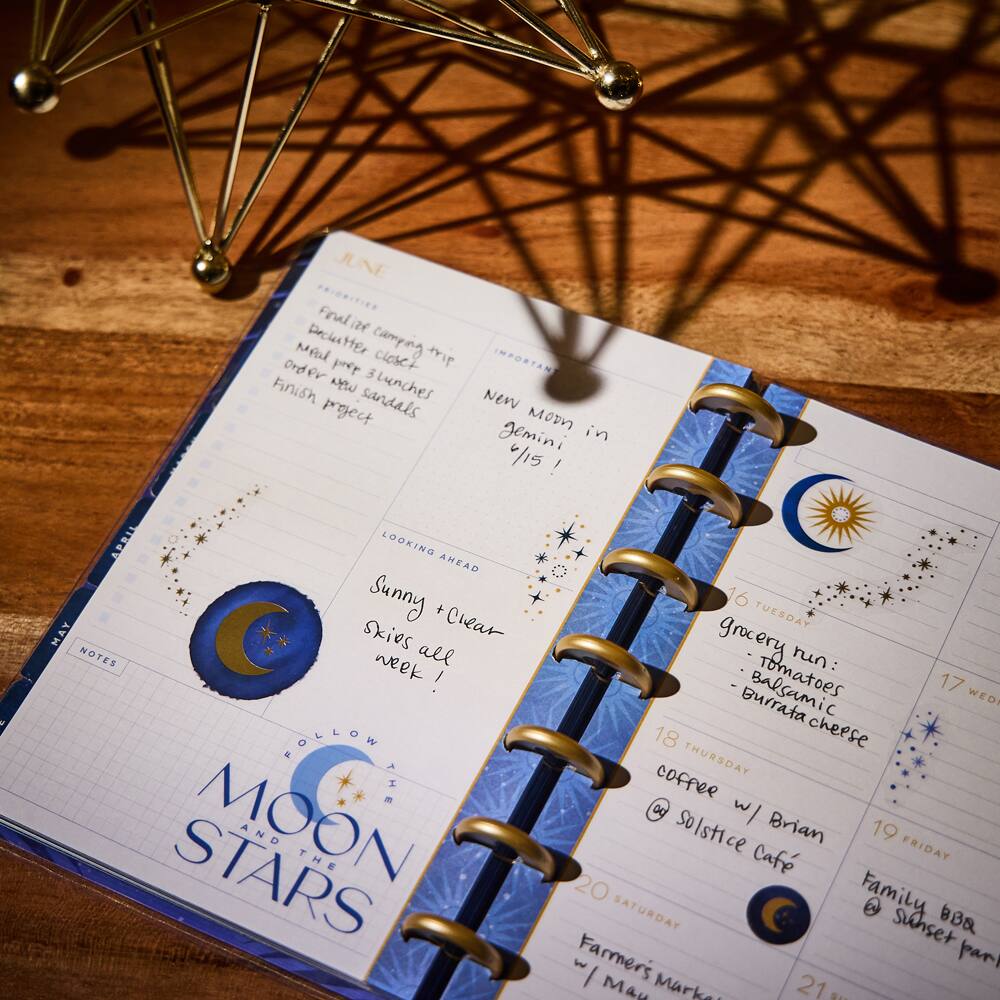 JUNE
PRIORITIES
Finalize camping trip
Declutter closet
Meal prep 3 lunches
Order new sandals
Finish project
IMPORTANT
New Moon in
gemini
6/15 !
LOOKING AHEAD
Sunny + Clear
skies all
week !
APRIL
MAY
NOTES
FOLLOW THE
MOON
AND THE
STARS
16 TUESDAY
grocery run:
- Tomatoes
- Balsamic
- Burrata cheese
17
18 THURSDAY
coffee w/ Brian
@ Solstice Café
19 FRIDAY
Family BBQ
@ Sunset
20 SATURDAY
Farmer's Market
w/ May
21